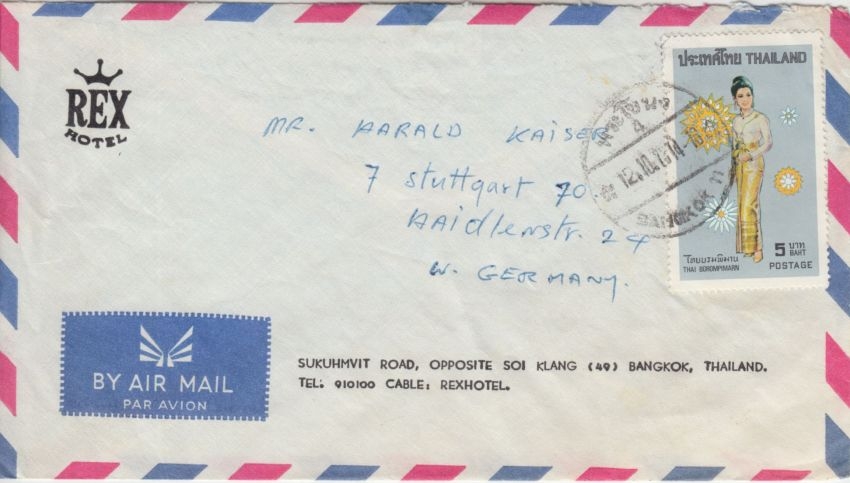 REX
HOTEL
ประเทศไทย THAILAND
BANGKOK 11
MR. HARALD KAISER
7 stuttgart 70
HAidlenstr. 24
W. GERMANY.
5 บาท
BAHT
ไทยบรมพิมาน
THAI BOROMPIMARN
POSTAGE
BY AIR MAIL
PAR AVION
SUKUHMVIT ROAD, OPPOSITE SOI KLANG (49) BANGKOK, THAILAND.
TEL: 910100 CABLE: REXHOTEL.